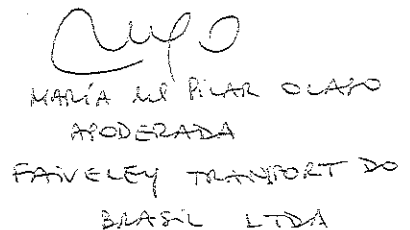 MARÍA del PILAR OLASO
APODERADA
FAIVELEY TRANPORT DO
BRASIL LTDA